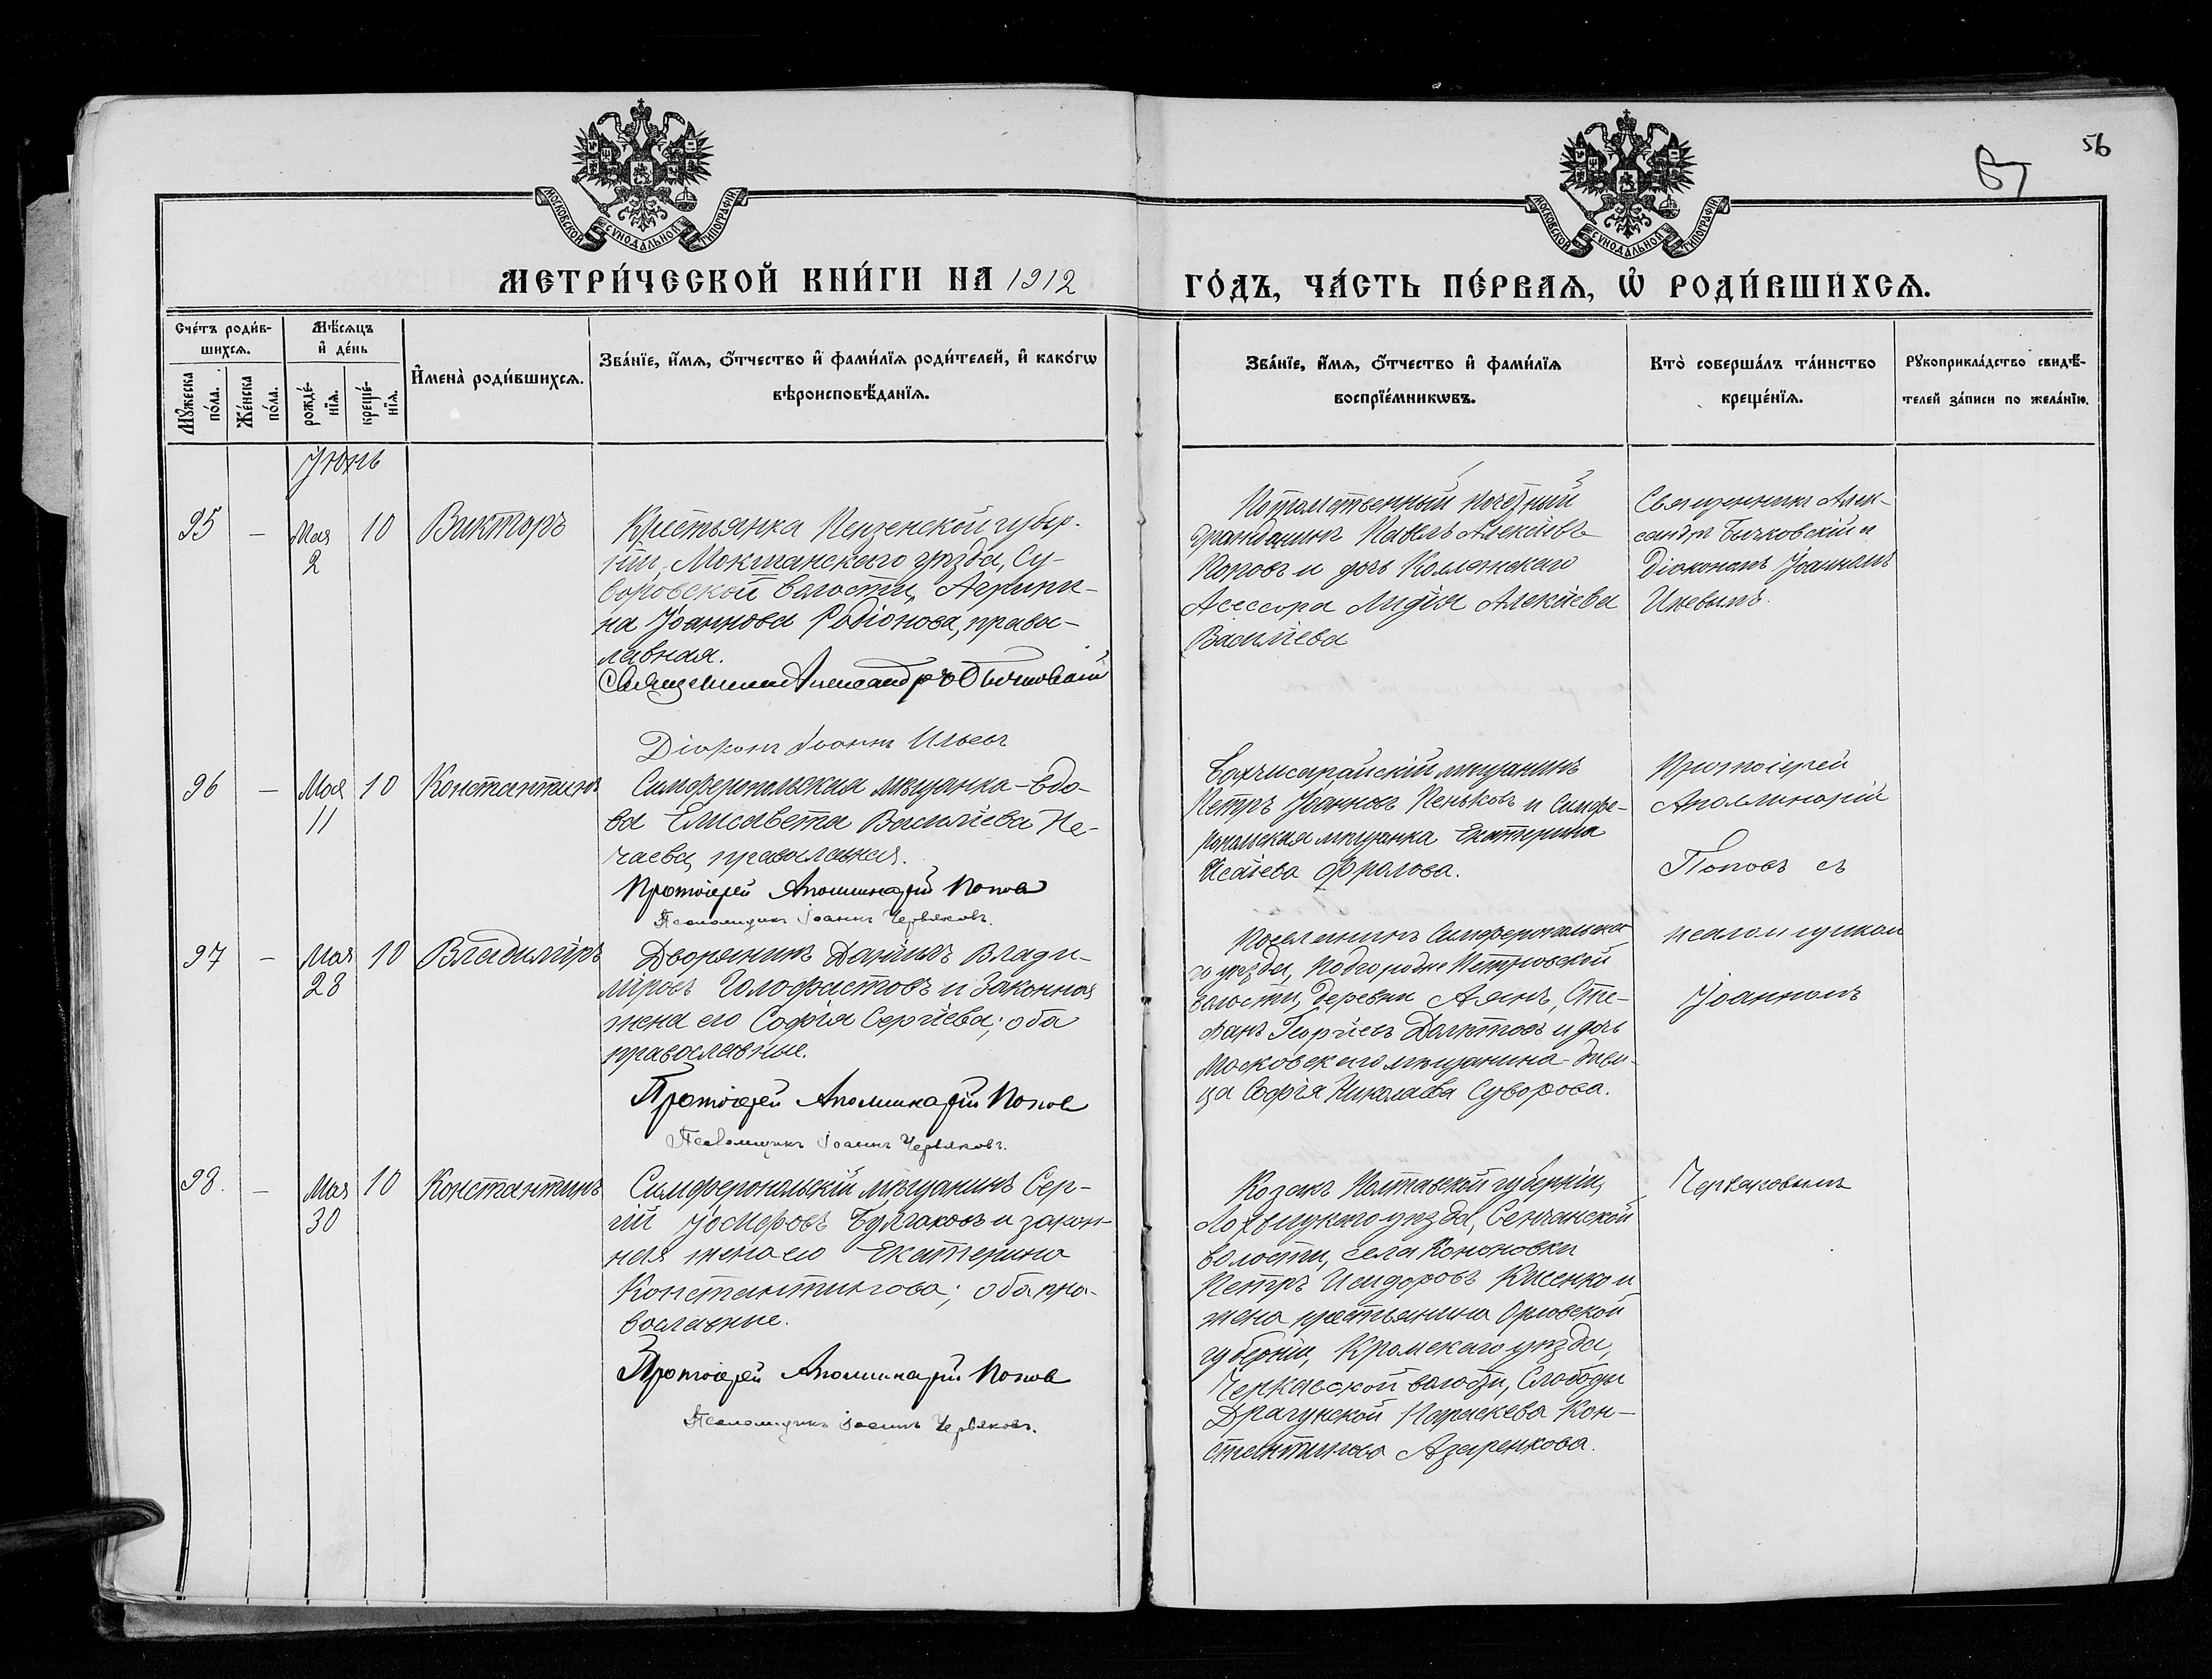 56
57
МОСКОВСКОЙ СѴНОДАЛЬНОЙ ТИПОГРАФІИ.
МОСКОВСКОЙ СѴНОДАЛЬНОЙ ТИПОГРАФІИ.
МЕТРИ́ЧЕСКОЙ КНИ́ГИ НА 1912
ГО́ДЪ, ЧА́СТЬ ПЕ́РВАѦ, Ѽ РОДИ́ВШИХСѦ.
Сче́тъ роди́в-
шихсѧ.
Мꙋ́жеска
по́ла.
Же́нска
по́ла.
Мѣ́сѧцъ
и҆ де́нь
рожде́-
нїѧ.
креще́-
нїѧ.
И҆мена̀ роди́вшихсѧ.
Зва́нїе, и҆́мѧ, ѻ҆́тчество и҆ фами́лїѧ роди́телей, и҆ како́гѡ
вѣроисповѣ́данїѧ.
Зва́нїе, и҆́мѧ, ѻ҆́тчество и҆ фами́лїѧ
воспрїе́мникѡвъ.
Кто̀ соверша́лъ та́инство
креще́нїѧ.
Рꙋкоприкла́дство свидѣ́-
телей за́писи по жела́нїю.
Іюнь
95
—
Мая
2
10
Викторъ
Крестьянка Пензенской губер-
ніи, Мокшанскаго уѣзда, Су-
воровской волости, Агрипи-
на Іоаннова Родіонова, право-
лавная.
Священникъ Александръ Бычковскій
Діаконъ Іоаннъ Ильевъ
Потомственный почетный
гражданинъ Павелъ Алексіевъ
Поповъ и дочь Коллежскаго
Ассесора Лидія Алексіева
Василіева
Священникъ Алек-
сандръ Бычковскій и
Діакономъ Іоанномъ
Ильевымъ.
96
—
Мая
11
10
Константинъ
Симферопольская мѣщанка-вдо-
ва Елисавета Василіева Не-
чаева, православная.
Протоіерей Аполлинарій Попов
Псаломщикъ Іоаннъ Червяковъ.
Бахчисарайскій мѣщанинъ
Петръ Іоанновъ Пеньковъ и Симфе-
ропольская мѣщанка Екатерина
Исаіева Фролова.
Протоіерей
Аполлинарій
Поповъ съ
97
—
Мая
28
10
Владиміръ
Дворянинъ Даніилъ Влади-
міровъ Голофастовъ и законная
жена его Софія Сергіева; оба
православные.
Протоіерей Аполлинарій Попов
Псаломщикъ Іоаннъ Червяковъ.
Поселянинъ Симферопольска-
го уѣзда, Подгородне Петровской
волости, деревни Аянъ, Сте-
фанъ Георгіевъ Долптовъ и дочь
Московскаго мѣщанина-дѣви-
ца Софія Николаева Суворова.
псаломщикомъ
Іоанномъ
98.
—
Мая
30
10
Константинъ
Симферопольскій мѣщанинъ Сер-
гій Іосифовъ Булгаковъ и закон-
ная жена его Екатерина
Константинова; оба пра-
вославные.
Протоіерей Аполлинарій Попов
Псаломщикъ Іоаннъ Червяковъ.
Козакъ Полтавской губерніи,
Лохвицкаго уѣзда, Сенчанской
волости, села Кононовки
Петръ Исидоровъ Кисенко и
жена крестьянина Орловской
губерніи, Кромскаго уѣзда,
Черкасской волости, Слободы
Драгунской Параскева Кон-
стантинова Азаренкова.
Червяковымъ